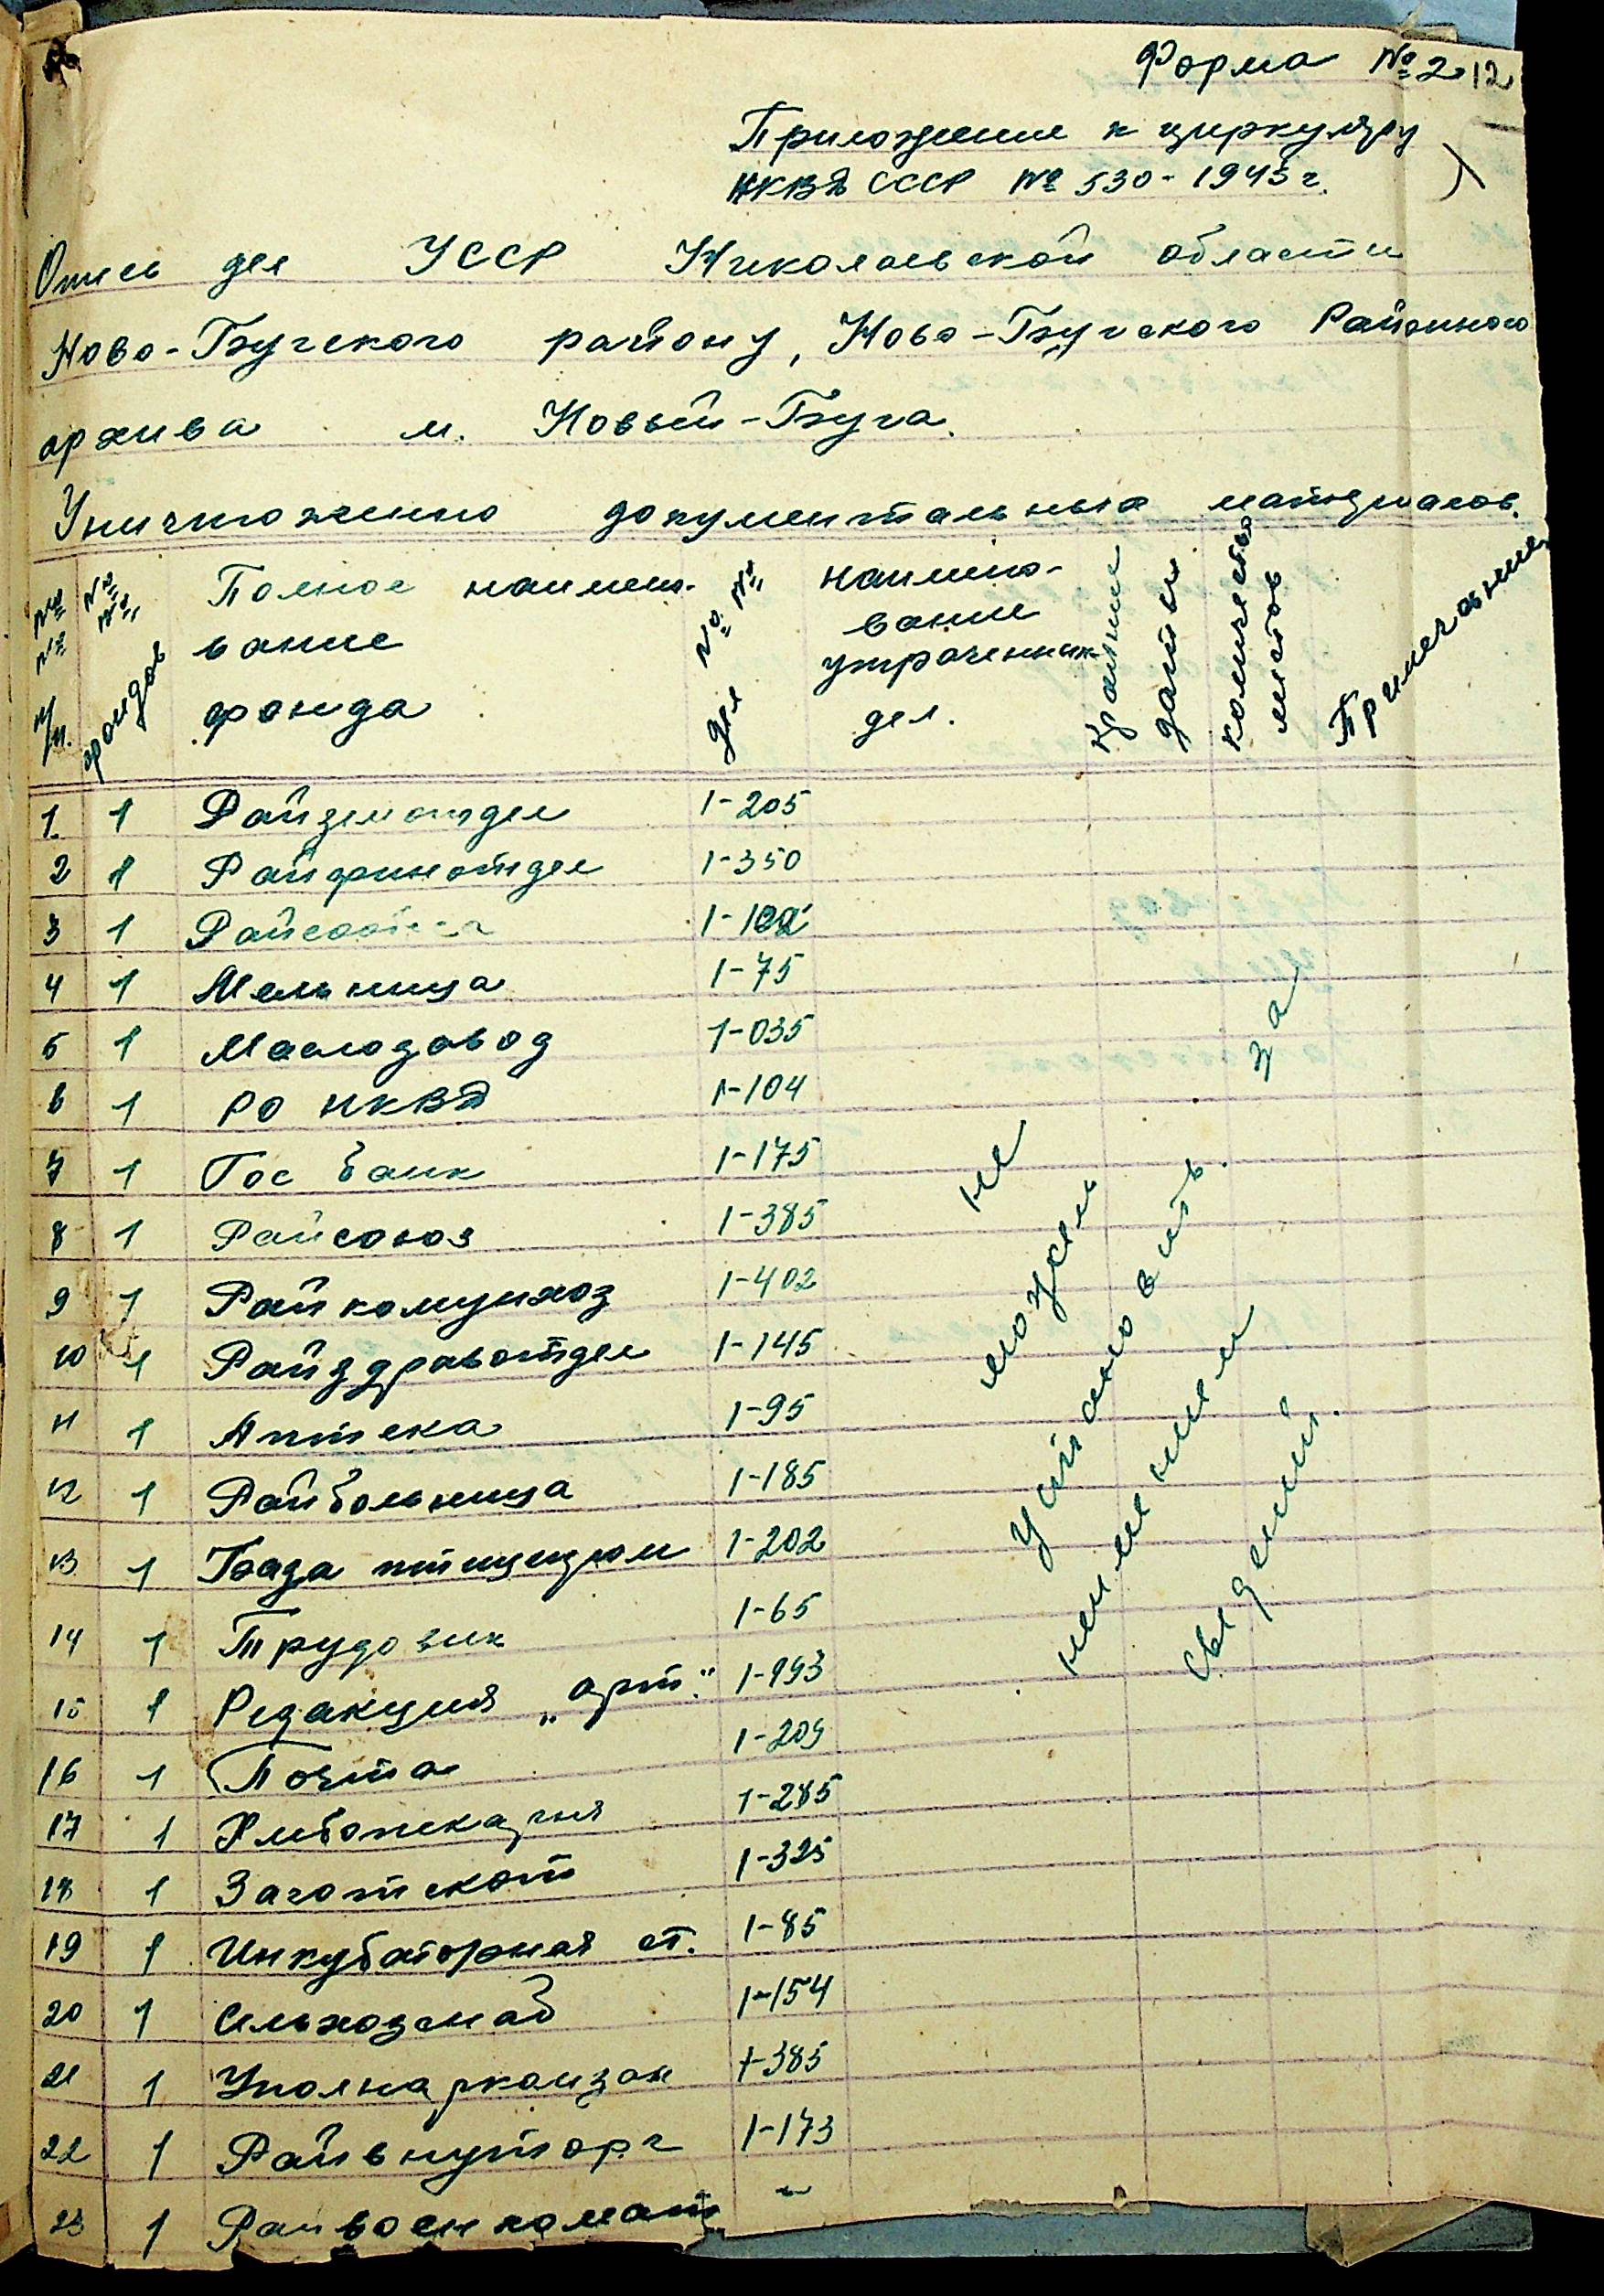 Форма № 2 12
Приложение к циркуляру
НКВД СССР № 530-1943 г.
Опись дел УССР Николаевской области
Ново-Бугского району, Ново-Бугского Районного
архива м. Новый-Буга.
Уничтоженно документальных материалов.
№ № п/п.
№ № фондов
Полное наимено-
вание
фонда
№ № дел
наимено-
вание
утраченных
дел.
Крайние даты
количество листов
Примечание
1. 1 Райземотдел 1-205
2 1 Райфинотдел 1-350
3 1 1-102
4 1 Мельница 1-75
5 1 Маслозавод 1-035
6 1 РО НКВД 1-104
7 1 Гос банк 1-175
8 1 Райсоюз 1-385
9 1 Райкомунхоз 1-402
10 1 Райздравотдел 1-145
11 1 Аптека 1-95
12 1 Райбольница 1-185
13 1 База птицепром 1-202
14 1 Трудовик 1-65
15 1 Редакция „арт." 1-193
16 1 Почта 1-209
17 1 Хлебопекарня 1-285
18 1 Заготскот 1-325
19 1 Инкубаторная ст. 1-85
20 1 Сельхозснаб 1-154
21 1 Уполнаркомзаг 1-385
22 1 Райвнуторг 1-173
23 1 Райвоенкомат "
не
можем
установить за
неимением
сведений.